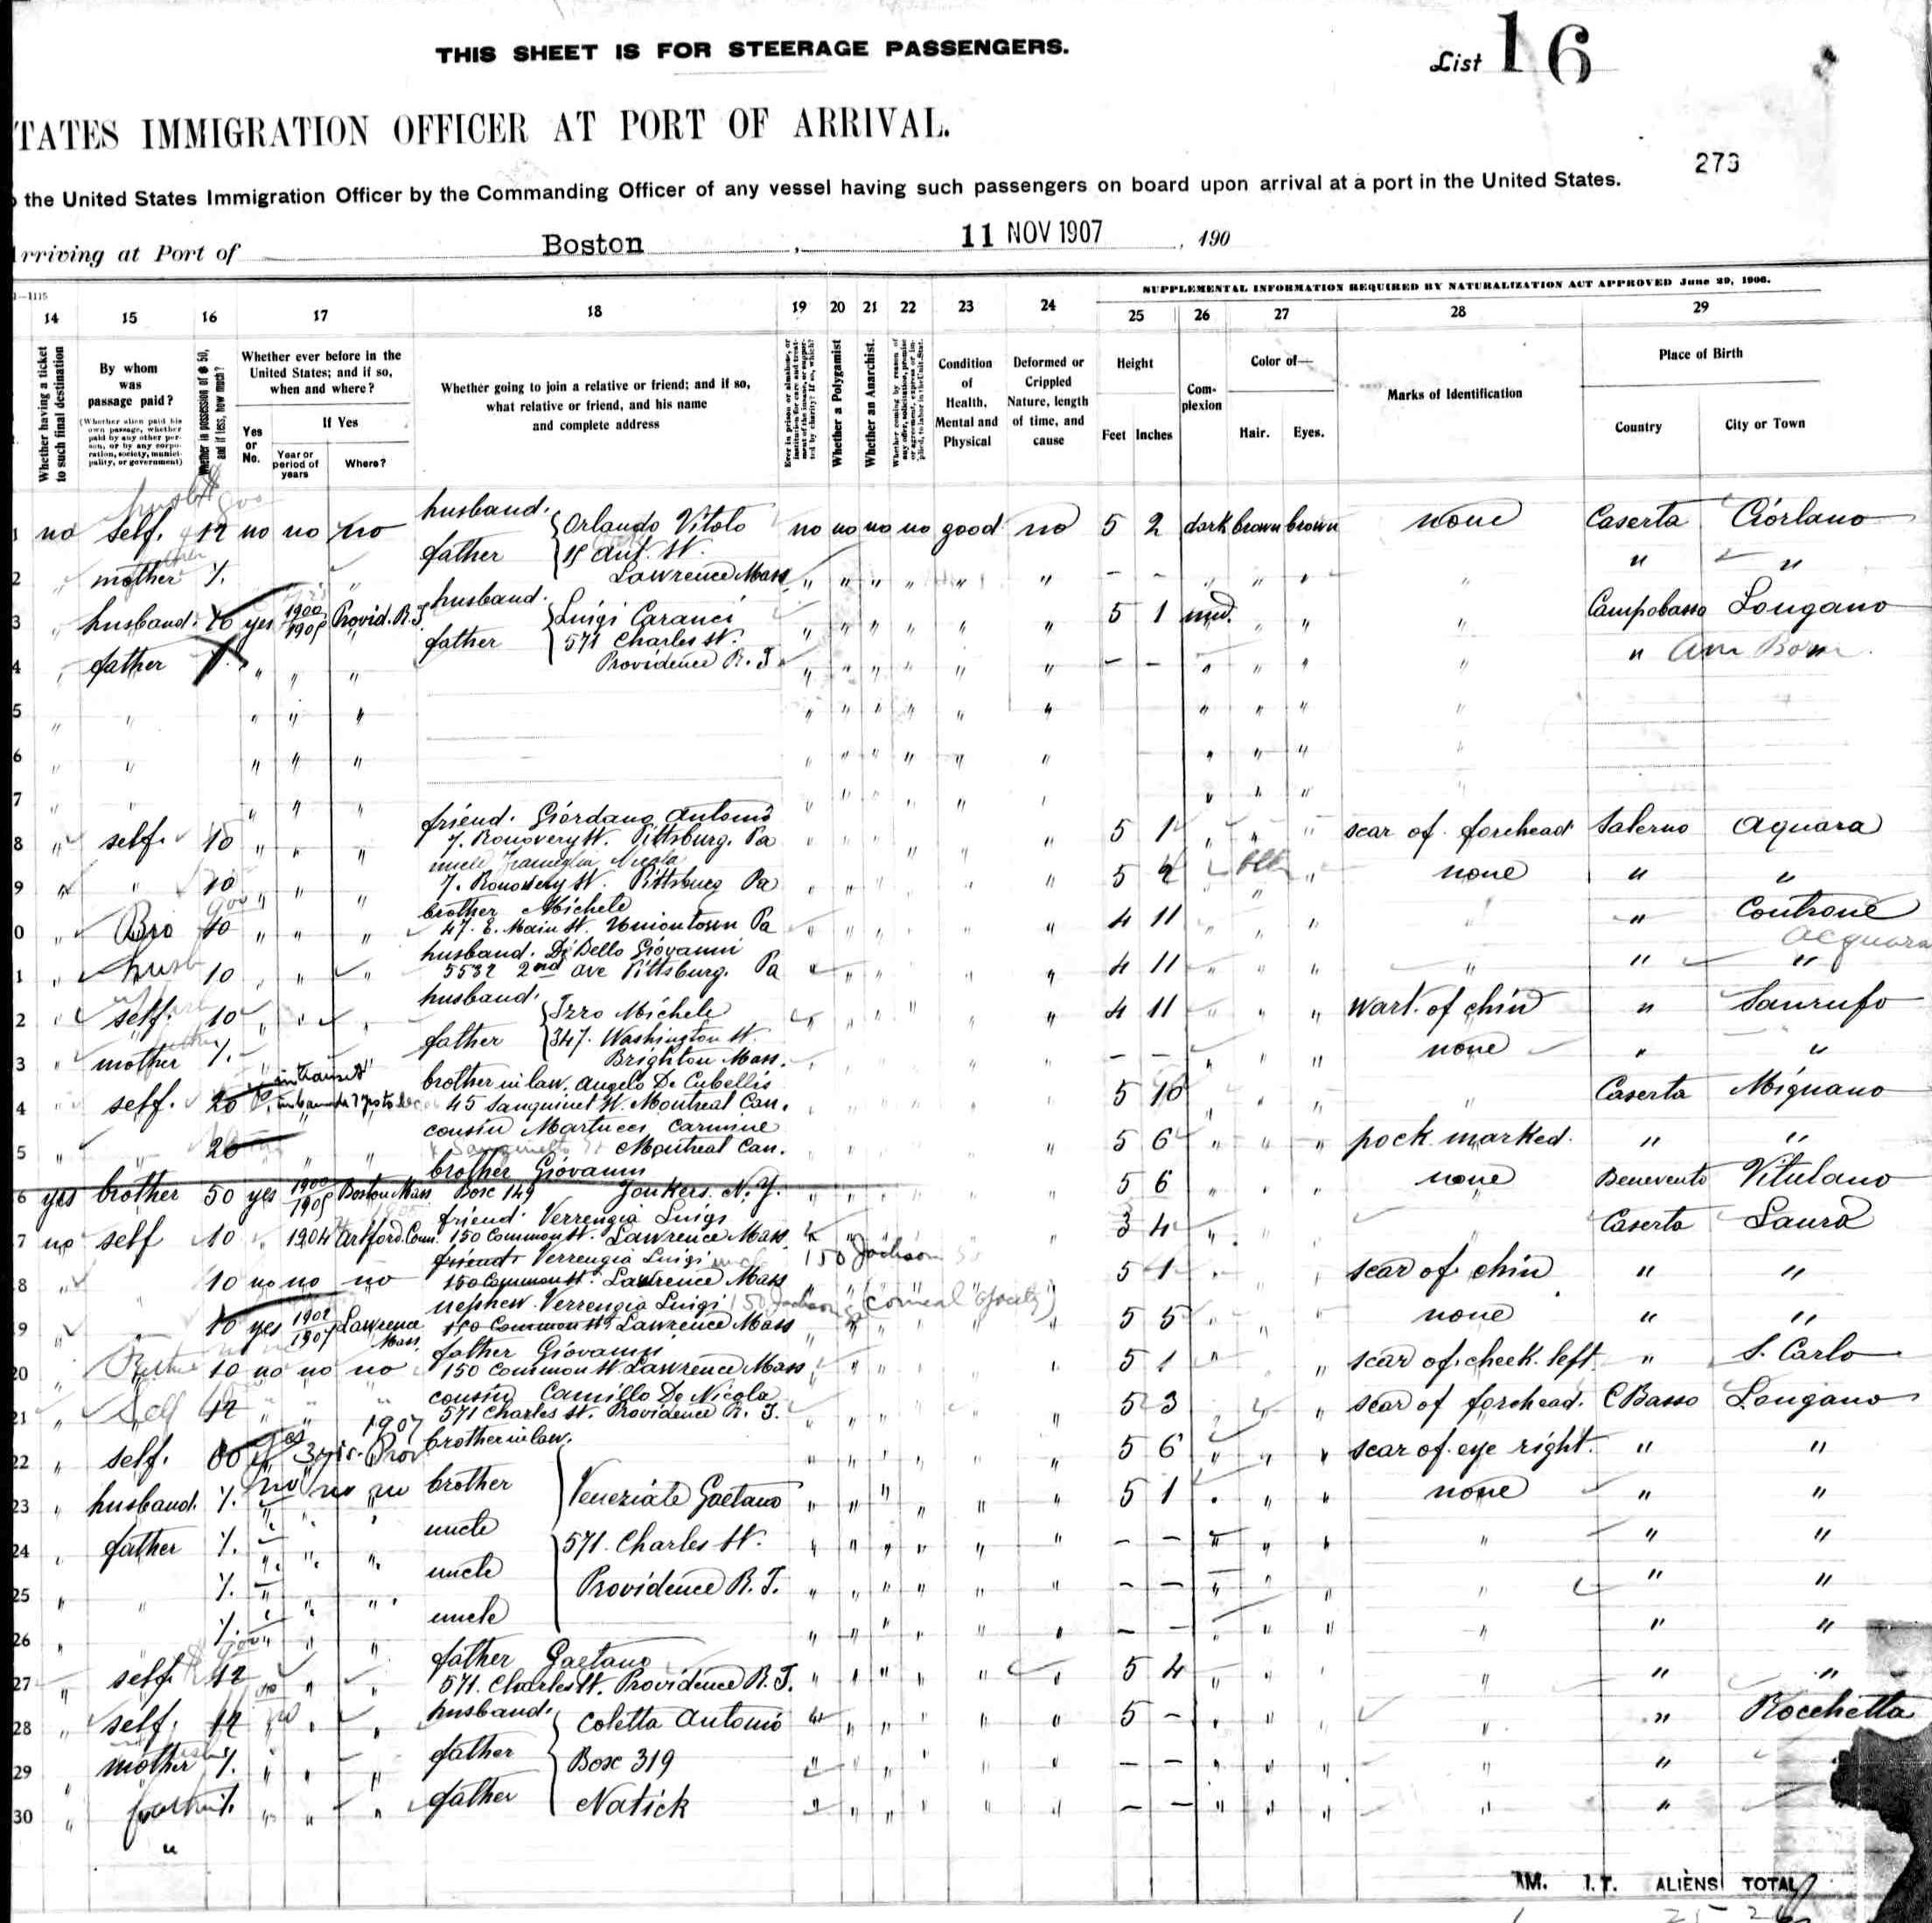 THIS SHEET IS FOR STEERAGE PASSENGERS.
List 16
TATES IMMIGRATION OFFICER AT PORT OF ARRIVAL.
273
the United States Immigration Officer by the Commanding Officer of any vessel having such passengers on board upon arrival at a port in the United States.
rriving at Port of Boston, 11 NOV 1907, 190
SUPPLEMENTAL INFORMATION REQUIRED BY NATURALIZATION ACT APPROVED June 29, 1906.
14 15 16 17 18 19 20 21 22 23 24 25 26 27 28 29
Whether having a ticket to such final destination
By whom was passage paid?
(Whether alien paid his own passage, whether paid by any other person, or by any corporation, society, municipality, or government)
Whether in possession of $50, and if less, how much?
Whether ever before in the United States; and if so, when and where?
Yes or No.
If Yes
Year or period of years
Where?
Whether going to join a relative or friend; and if so, what relative or friend, and his name and complete address
Whether a Polygamist
Whether an Anarchist.
Condition of Health, Mental and Physical
Deformed or Crippled Nature, length of time, and cause
Height
Feet Inches
Complexion
Color of—
Hair. Eyes.
Marks of Identification
Place of Birth
Country
City or Town
1 no self. 12 no no no husband. Orlando Vitolo no no no no good no 5 2 dark brown brown none Caserta Ciorlano
2 " mother %. father Ant. St. Lawrence Mass " " " " " " - - " " " " " "
3 " husband. yes 1900 1905 Provid. R.I. husband. Luigi Caranci " " " " " " 5 1 med. " " " Campobasso Longano
4 " father " " " father 571 Charles St. Providence R.I. " " " " " " - - " " " " " Am Born
5 " " " " " " " " " " " " " " "
6 " " " " " " " " " " " " " " "
7 " " " " " " " " " " " " " " "
8 " self. 10 " " " friend. Giordano Antonio Pittsburg. Pa 5 1 scar of forehead Salerno Aquara
9 " " 10 " " " uncle Nicola Pittsburg Pa 5 2 blk none " "
0 " Bro 10 " " " brother Michele 47. E. Main St. Uniontown Pa 4 11 " Controne
1 " husb 10 " " " husband. Di Bello Giovanni 5532 2nd Ave Pittsburg. Pa 4 11 " " " Acquara
2 " self. 10 " " " husband. Izzo Michele 4 11 wart. of chin " Sanrufo
3 " mother %. father 347. Washington St. Brighton Mass. - - none " "
4 " self. 20 in transit brother in law. Angelo De Cubellis 45 Sanguinet St. Montreal Can. 5 10 " Caserta Mignano
5 " " 20 " " cousin Martucci Carmine Montreal Can. 5 6 pock marked. " "
6 yes brother 50 yes 1900 1905 Boston Mass brother Giovanni Box 149 Yonkers. N.Y. 5 6 none Benevento Vitulano
7 no self 10 " 1904 Artford Conn. friend. Verrengia Luigi 150 Common St. Lawrence Mass. 3 4 Caserta Laura
8 " 10 no no no friend Verrengia Luigi 150 Jackson St 150 Common St. Lawrence Mass 5 1 scar of chin " "
9 " 10 yes 1902 1907 Lawrence Mass nephew. Verrengia Luigi 150 Jackson St (corneal opacity) 150 Common St. Lawrence Mass 5 5 none " "
20 " 10 no no no father Giovanni 150 Common St. Lawrence Mass 5 1 scar of. cheek. left " S. Carlo
21 " Self 12 " " " cousin Camillo De Nicola 571 Charles St. Providence R.I. 5 3 scar of forehead. C Basso Longano
22 " self. yes 3 yrs. 1907 Prov brother in law. 5 6 scar of. eye right. " "
23 " husband. %. no no no brother Veneziale Gaetano 5 1 none " "
24 " father %. " " " uncle 571. Charles St. - - " " "
25 " " %. " " " uncle Providence R.I. - - " " "
26 " %. " " " uncle - - " " "
27 " self. 12 " " father Gaetano 571. Charles St. Providence R.I. 5 4 " " "
28 " self. 12 no " " husband. Coletta Antonio 5 - " " Rocchetta
29 " mother %. " " " father Box 319 - - " "
30 " %. " " " father Natick - - " "
"
AM. I.T. ALIENS TOTAL